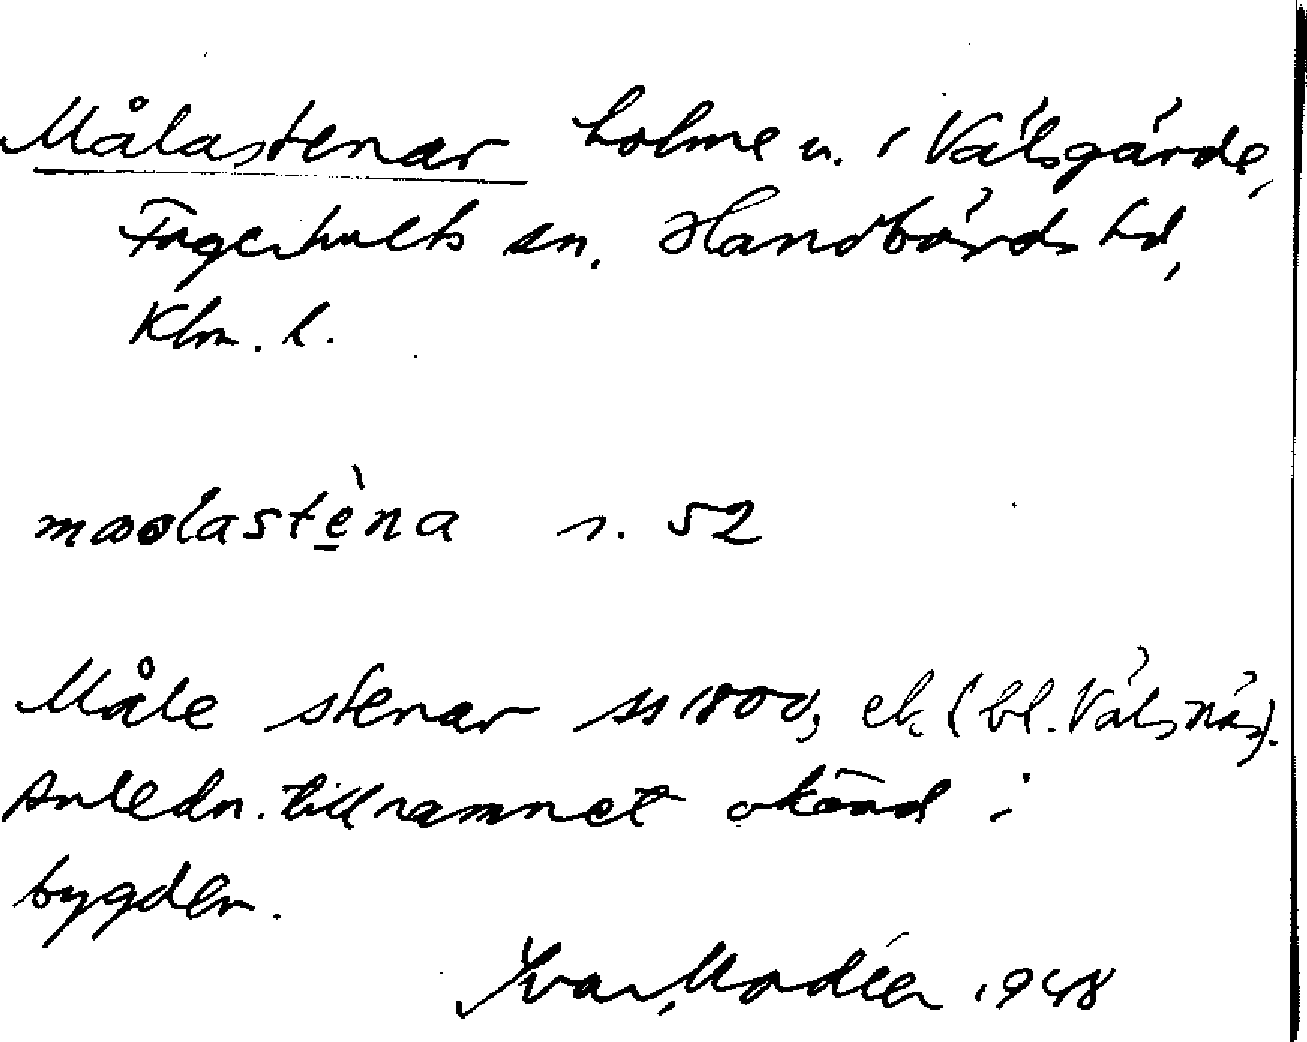 Målastenar holme u. i Välsgärde,
Fagerhults sn. Handbörds hd,
Klm. l.
maolastèna r. 52
Måle stenar 1800, ek. (bl. Välsnäs).
Anledn. till namnet okänd i
bygden.
Ivar Modéer 1948